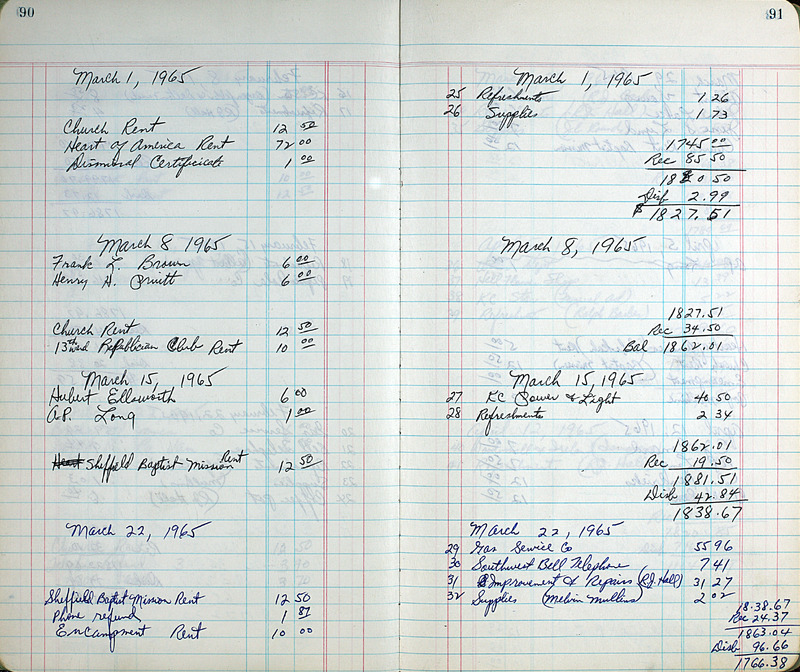 90
March 1, 1965
Church Rent 12 50
Heart of America Rent 72 00
Dismissal Certificate 1 00
March 8 1965
Frank L. Brown 6 00
Henry H. Pruitt 6 00
Church Rent 12 50
13th ward Republician Club Rent 10 00
March 15, 1965
Hubert Ellsworth 6 00
A.P. Long 1 00
Sheffield Baptist Mission Rent 12 50
March 22, 1965
Sheffield Baptist Mission Rent 12 50
Phone refund 1 87
Encampment Rent 10 00
91
March 1, 1965
25 Refreshments 1.26
26 Supplies 1.73
1745 00
Rec 85 50
1830 50
Disb 2.99
$ 1827.51
March 8, 1965
1827.51
Rec 34.50
Bal 1862.01
March 15, 1965
27 KC Power & Light 40 50
28 Refreshments 2 34
1862.01
Rec 19.50
1881.51
Disb 42.84
1838.67
March 22, 1965
29 Gas Service Co 55 96
30 Southwest Bell Telephone 7 41
31 Improvement & Repairs (R.J. Hall) 31 27
32 Supplies (Melvin Mullins) 2 02
18.38.67
Rec 24.37
1863.04
Disb 96.66
1766.38